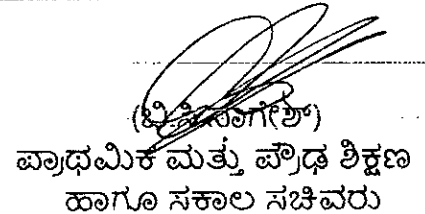 (ಬಿ.ಸಿ.ನಾಗೇಶ್)
ಪ್ರಾಥಮಿಕ ಮತ್ತು ಪ್ರೌಢ ಶಿಕ್ಷಣ
ಹಾಗೂ ಸಕಾಲ ಸಚಿವರು